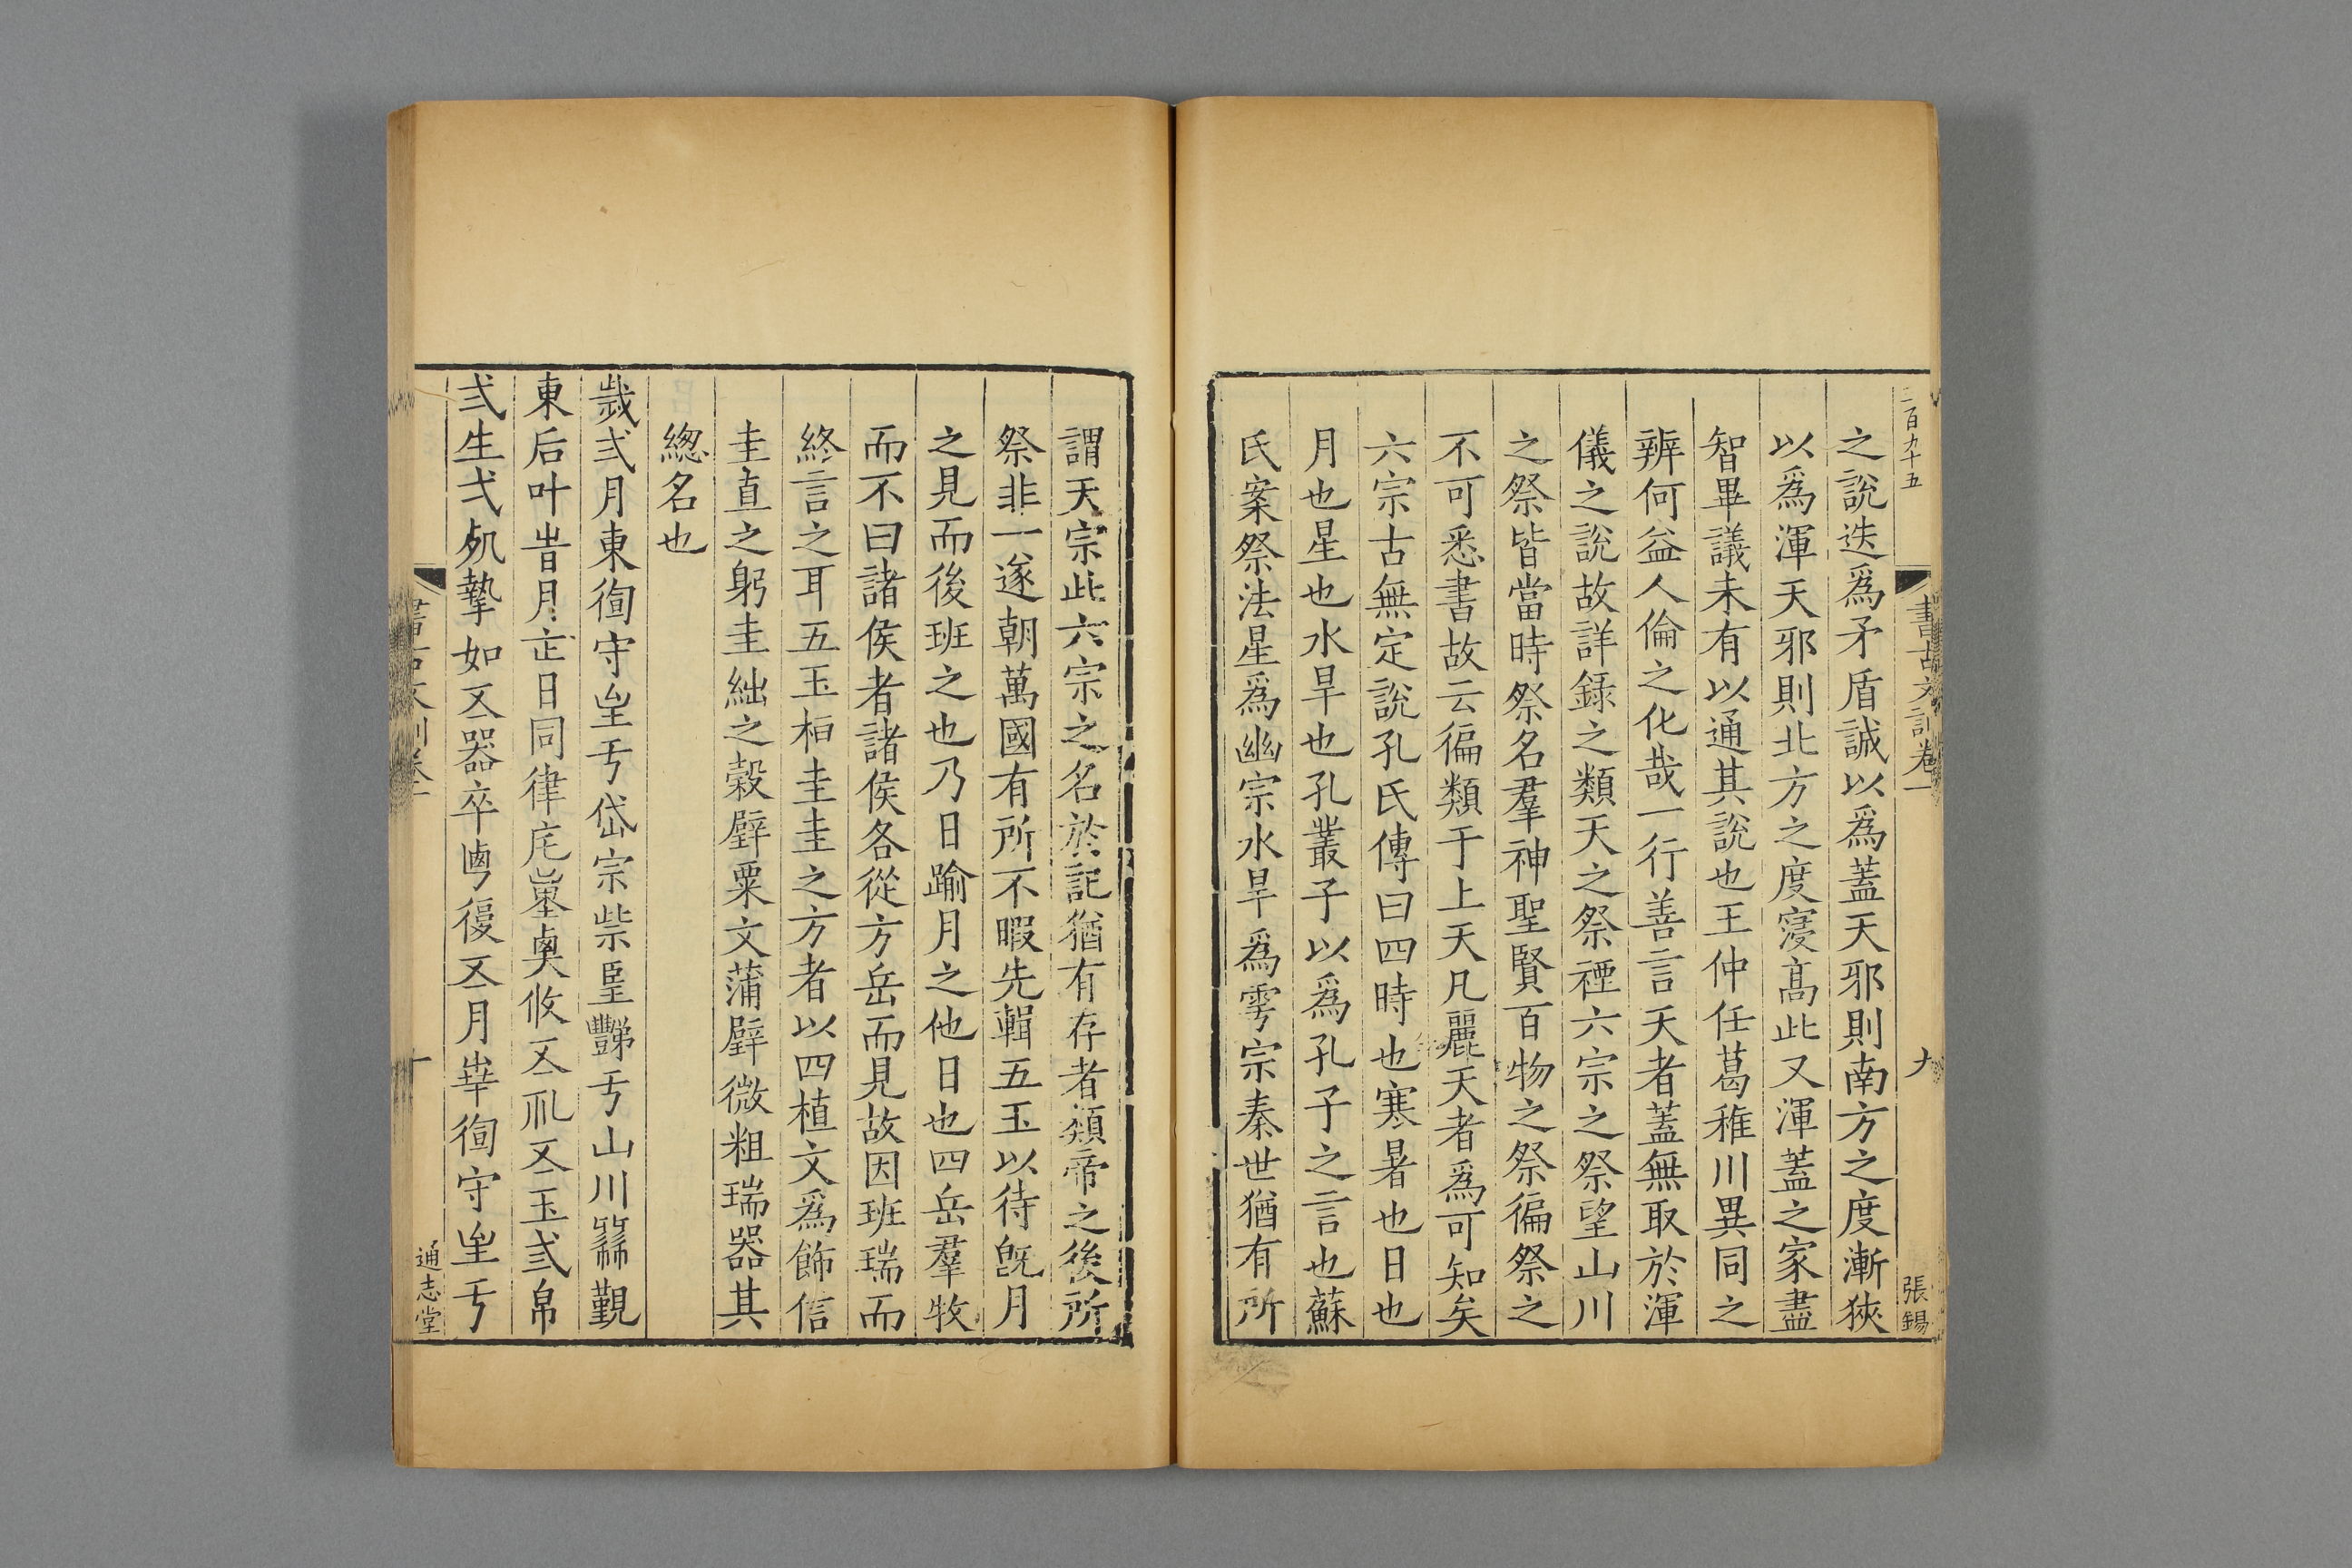 二百九十五
書古文訓卷一
九
張錫
之說迭爲矛盾誠以爲蓋天邪則南方之度漸狹
以爲渾天邪則北方之度寖高此又渾蓋之家盡
智畢議未有以通其說也王仲任葛稚川異同之
辨何益人倫之化哉一行善言天者蓋無取於渾
儀之說故詳錄之類天之祭禋六宗之祭望山川
之祭皆當時祭名羣神聖賢百物之祭徧祭之
不可悉書故云徧類于上天凡麗天者爲可知矣
六宗古無定說孔氏傳曰四時也寒暑也日也
月也星也水旱也孔叢子以爲孔子之言也蘇
氏案祭法星爲幽宗水旱爲雩宗秦世猶有所
謂天宗此六宗之名於記猶有存者類帝之後所
祭非一遂朝萬國有所不暇先輯五玉以待旣月
之見而後班之也乃日踰月之他日也四岳羣牧
而不曰諸侯者諸侯各從方岳而見故因班瑞而
終言之耳五玉桓圭圭之方者以四植文爲飾信
圭直之躬圭絀之穀璧粟文蒲璧微粗瑞器其
緫名也
歲弍月東徇守㞷亐岱宗祡望豑亐山川𥳑覲
東后叶旹月𤴓日同律庑量奐攸𠄡𠃞𠄡玉弎帛
弍生弌𣦸摯如𠄡器卒𠧟復𠄡月㟧徇守㞷亐
十
通志堂